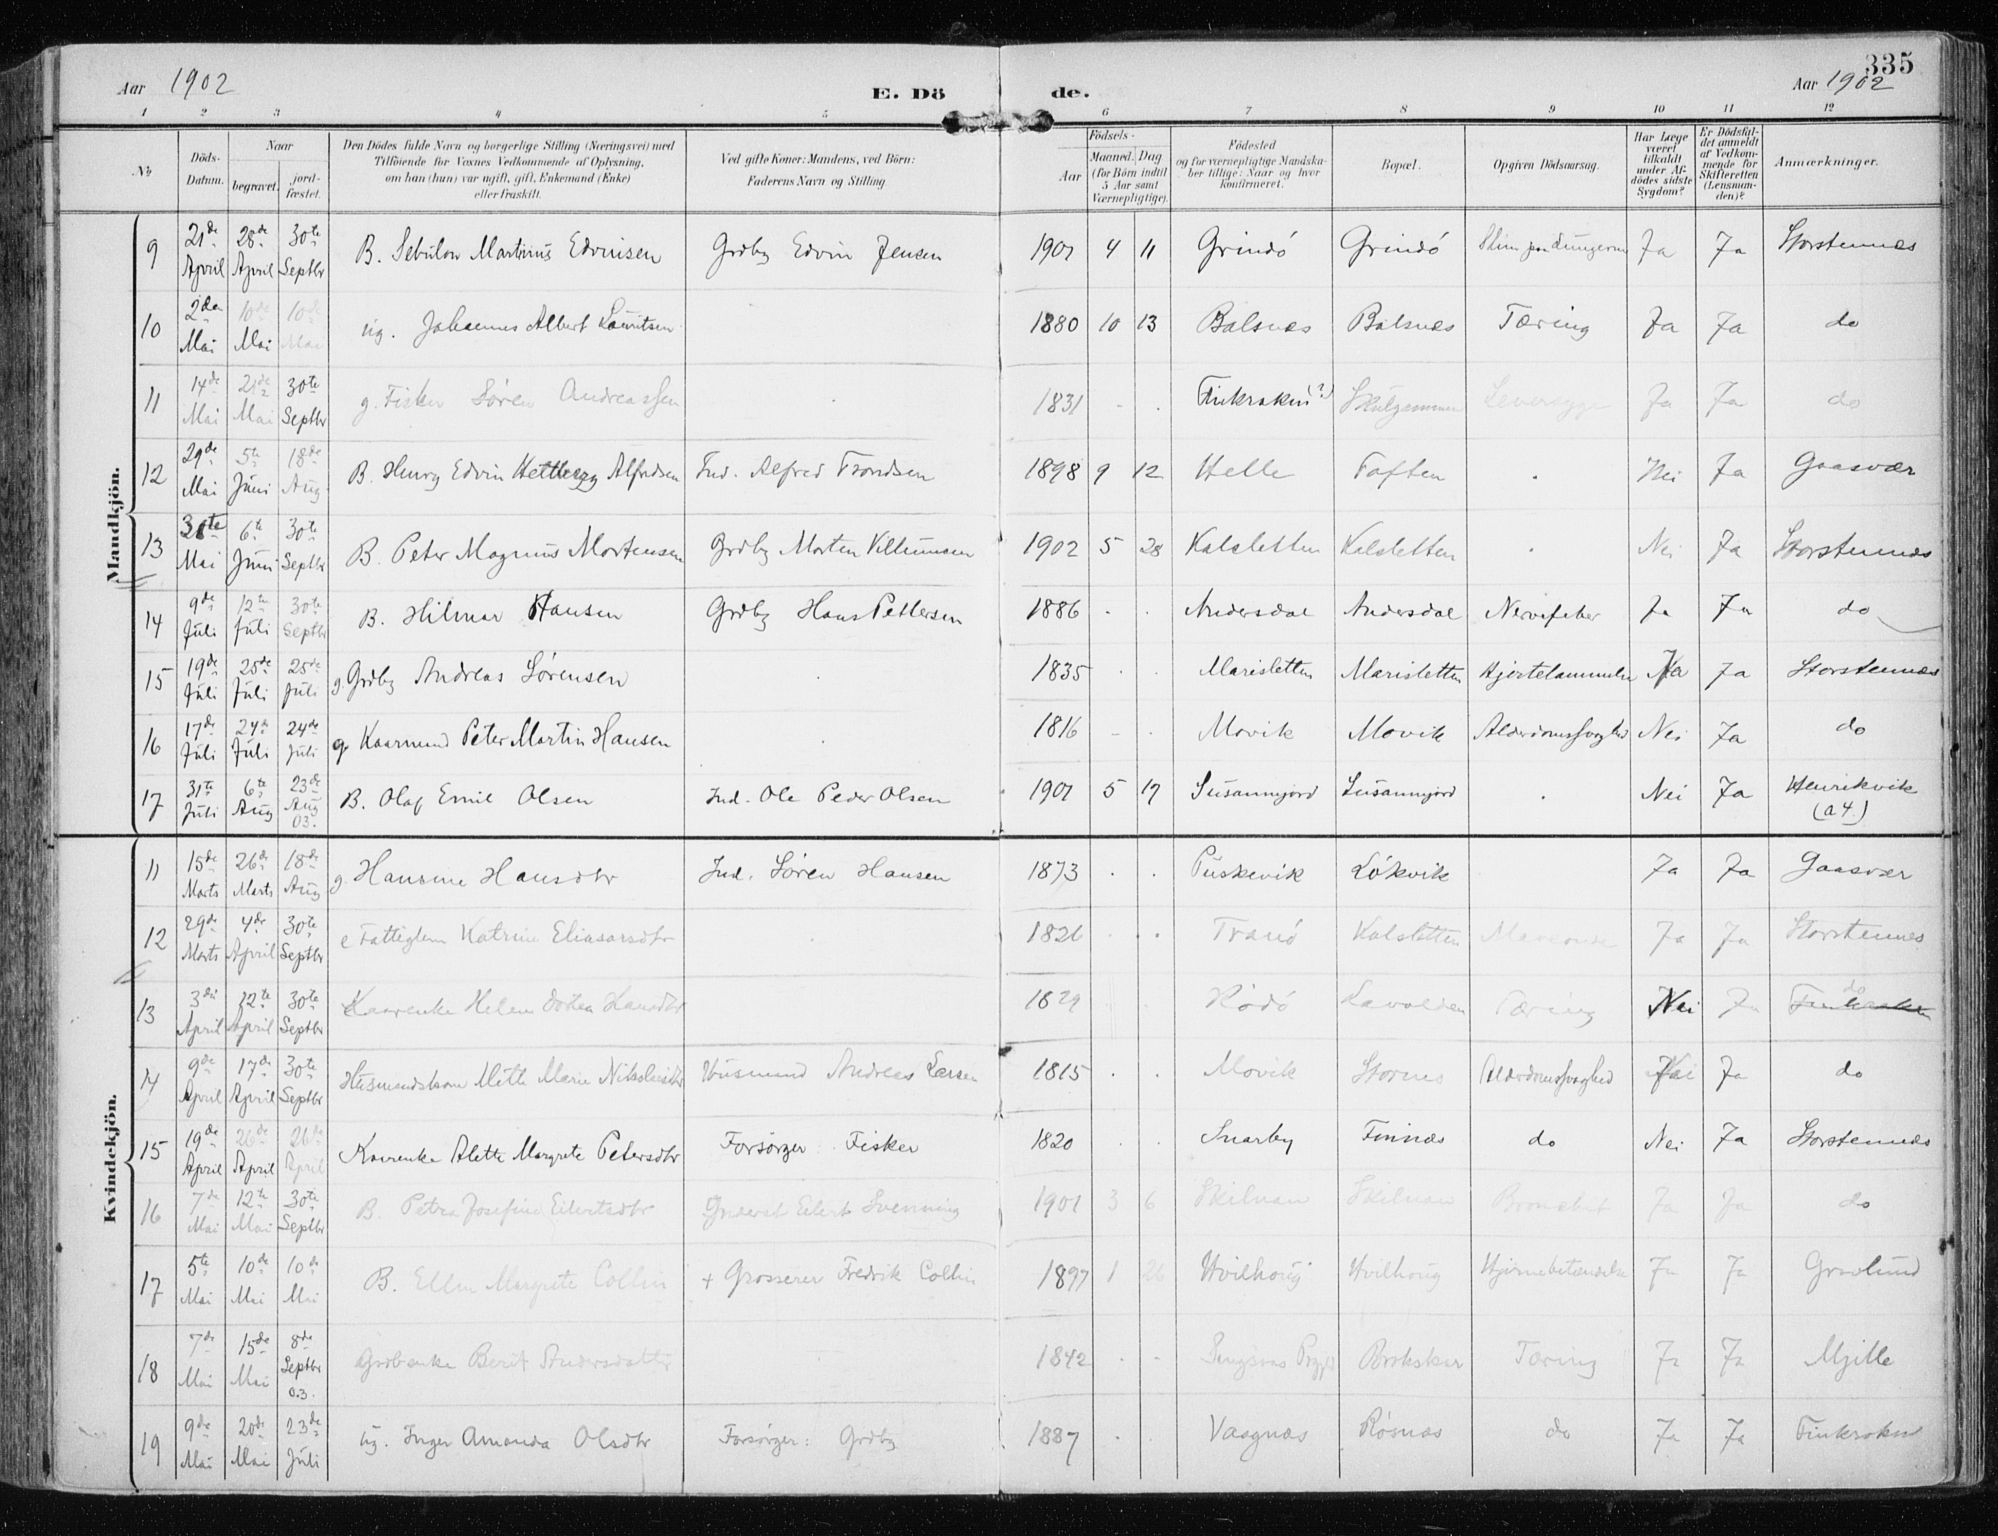 335
Aar 1902
E. Döde.
Aar 1902
1 2 3 4 5 6 7 8 9 10 11 12
No.
Döds-Datum.
Naar
begravet.
jord-fæstet.
Den Dödes fulde Navn og borgerlige Stilling (Næringsvei) med
Tilföiende for Voxnes Vedkommende af Oplysning,
om han (hun) var ugift, gift, Enkemand (Enke)
eller fraskilt.
Ved gifte Koner: Mandens, ved Börn:
Faderens Navn og Stilling
Födsels-
Aar
Maaned. Dag
(for Börn indtil
5 Aar samt
Værnepligtige).
Födested
og for værnepligtige Mandska-
ber tillige: Naar og hvor
konfirmeret.
Bopæl.
Opgiven Dödsaarsag.
Har Læge
været
tilkaldt
under Af-
dödes sidste
Sygdom?
Er Dödsfal-
det anmeldt
af Vedkom-
mende for
Skifteretten
(Lensman-
den)?
Anmærkninger.
Mandkjön.
9 21de April 28de April 30te Septbr B. Sebulon Martinus Edvinsen Grdbr Edvin Jensen 1901 4 11 Grindö Grindö Ja Ja Storstennæs
10 2den Mai 10de Mai 10de Mai ug. Johannes Albert Lauritsen 1880 10 13 Balsnæs Balsnæs Tæring Ja Ja do
11 14de Mai 21de Mai 30te Septbr g. Fisker Sören Andreassen 1831 - - Finkroken(?) Skulgammen Ja Ja do
12 29de Mai 5te Juni 18de Aug B. Henry Edvin Hettberg Alfredsen Ind. Alfred Trondsen 1898 9 12 Helle Toften . Nei Ja Gaasvær
13 31te Mai 6te Juni 30te Septbr B. Peter Magnus Mortensen Grdbr Morten Villumsen 1902 5 28 Kalsletten Kalsletten . Nei Ja Storstennæs
14 9de Juli 12te Juli 30te Septbr B. Hilmar Hansen Grdbr Hans Pettersen 1886 . . Andersdal Andersdal Nervefeber Ja Ja do
15 19de Juli 25de Juli 25de Juli g. Grdbr Andreas Sörensen 1835 . . Marisletten Marisletten Hjertelammelse Ja Ja Storstennæs
16 17de Juli 24de Juli 24de Juli g. Kaarmand Peter Martin Hansen 1816 - . Movik Movik Alderdomssvaghed Nei Ja do
17 31te Juli 6te Aug 23de Aug 03. B. Olaf Emil Olsen Ind. Ole Peder Olsen 1901 5 17 Susannjord Susannjord . Nei Ja Henrikvik (a4.)
Kvindekjön.
11 15de Marts 26de Marts 18de Aug g. Hansine Hansdtr Ind. Sören Hansen 1873 . . Puskevik Lökvik Ja Ja Gaasvær
12 29de Marts 4de April 30te Septbr e Fattiglem Katrine Eliasarsdtr 1826 . . Tranö Kalsletten Ja Ja Storstennes
13 3die April 12te April 30te Septbr Kaarenke Helene Dorthea Hansdtr 1829 Rödö Tæring Nei Ja do
14 9de April 17de April 30te Septbr Husmandskone Mette Marie Nikolaisdtr Husmand Andreas Larsen 1815 . . Movik Stornes Alderdomssvaghed Ja do
15 19de April 26de April 26de April Kaarenke Alette Margrete Petersdtr Forsörger: Fisker 1820 . . Snarby Finnæs do Nei Ja Storstennæs
16 7de Mai 12te Mai 30te Septbr B. Petra Josefine Eilertsdtr Inderst Eilert Svenning 1901 3 6 Skilnan Skilnan Ja Ja do
17 5te Mai 10de Mai 10de Mai B. Ellen Margrete Collin + Grosserer Fredrik Collin 1897 1 26 Hvilhoug Hvilhoug Hjernebetændelse Ja Ja Gravlund
18 7de Mai 15de Mai 8de Septbr 03. Grdbenke Berit Andersdatter 1842 . - Brokskar Tæring Ja Ja Mjelle
19 9de Mai 20de Mai 23de Juli ug. Inger Amanda Olsdtr Forsörger: Grdbr 1887 . . Vasgnæs Rösnæs do Ja Ja Finkroken